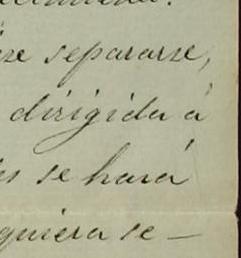 se separarse,
dirigida á
se hará
quiera se—